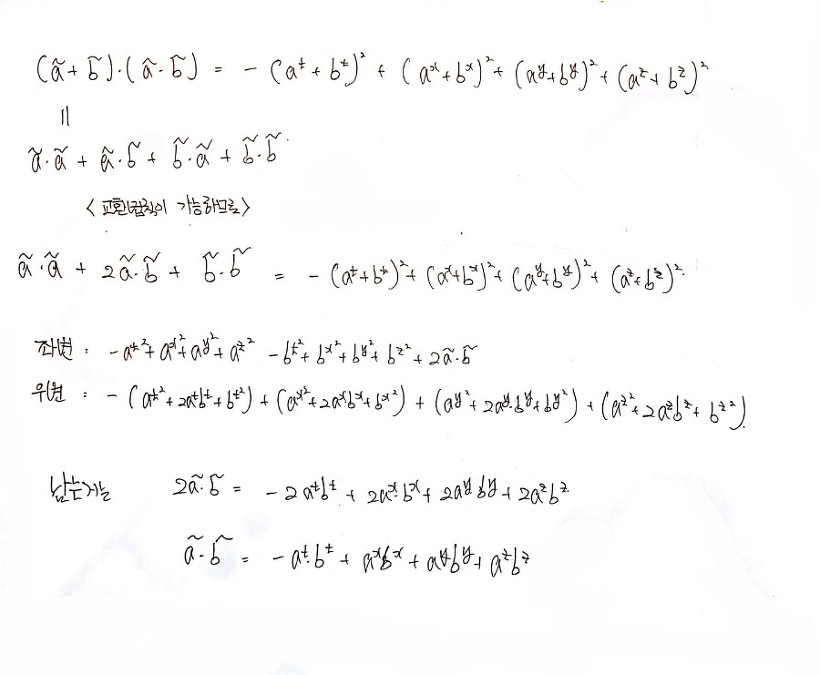 (ã + b̃)·(ã·b̃) = - (aᵗ + bᵗ)² + (aˣ + bˣ)² + (aʸ + bʸ)² + (aᶻ + bᶻ)²
||
ã·ã + ã·b̃ + b̃·ã + b̃·b̃
<교환법칙이 가능하므로>
ã·ã + 2ã·b̃ + b̃·b̃ = - (aᵗ + bᵗ)² + (aˣ + bˣ)² + (aʸ + bʸ)² + (aᶻ + bᶻ)²
좌변 : -aᵗ² + aˣ² + aʸ² + aᶻ² - bᵗ² + bˣ² + bʸ² + bᶻ² + 2ã·b̃
: - (aᵗ² + 2aᵗbᵗ + bᵗ²) + (aˣ² + 2aˣbˣ + bˣ²) + (aʸ² + 2aʸ·bʸ + bʸ²) + (aᶻ² + 2aᶻbᶻ + bᶻ²)
남는게는 2ã·b̃ = -2aᵗbᵗ + 2aˣ·bˣ + 2aʸbʸ + 2aᶻbᶻ
ã·b̃ = -aᵗ·bᵗ + aˣbˣ + aʸbʸ + aᶻbᶻ